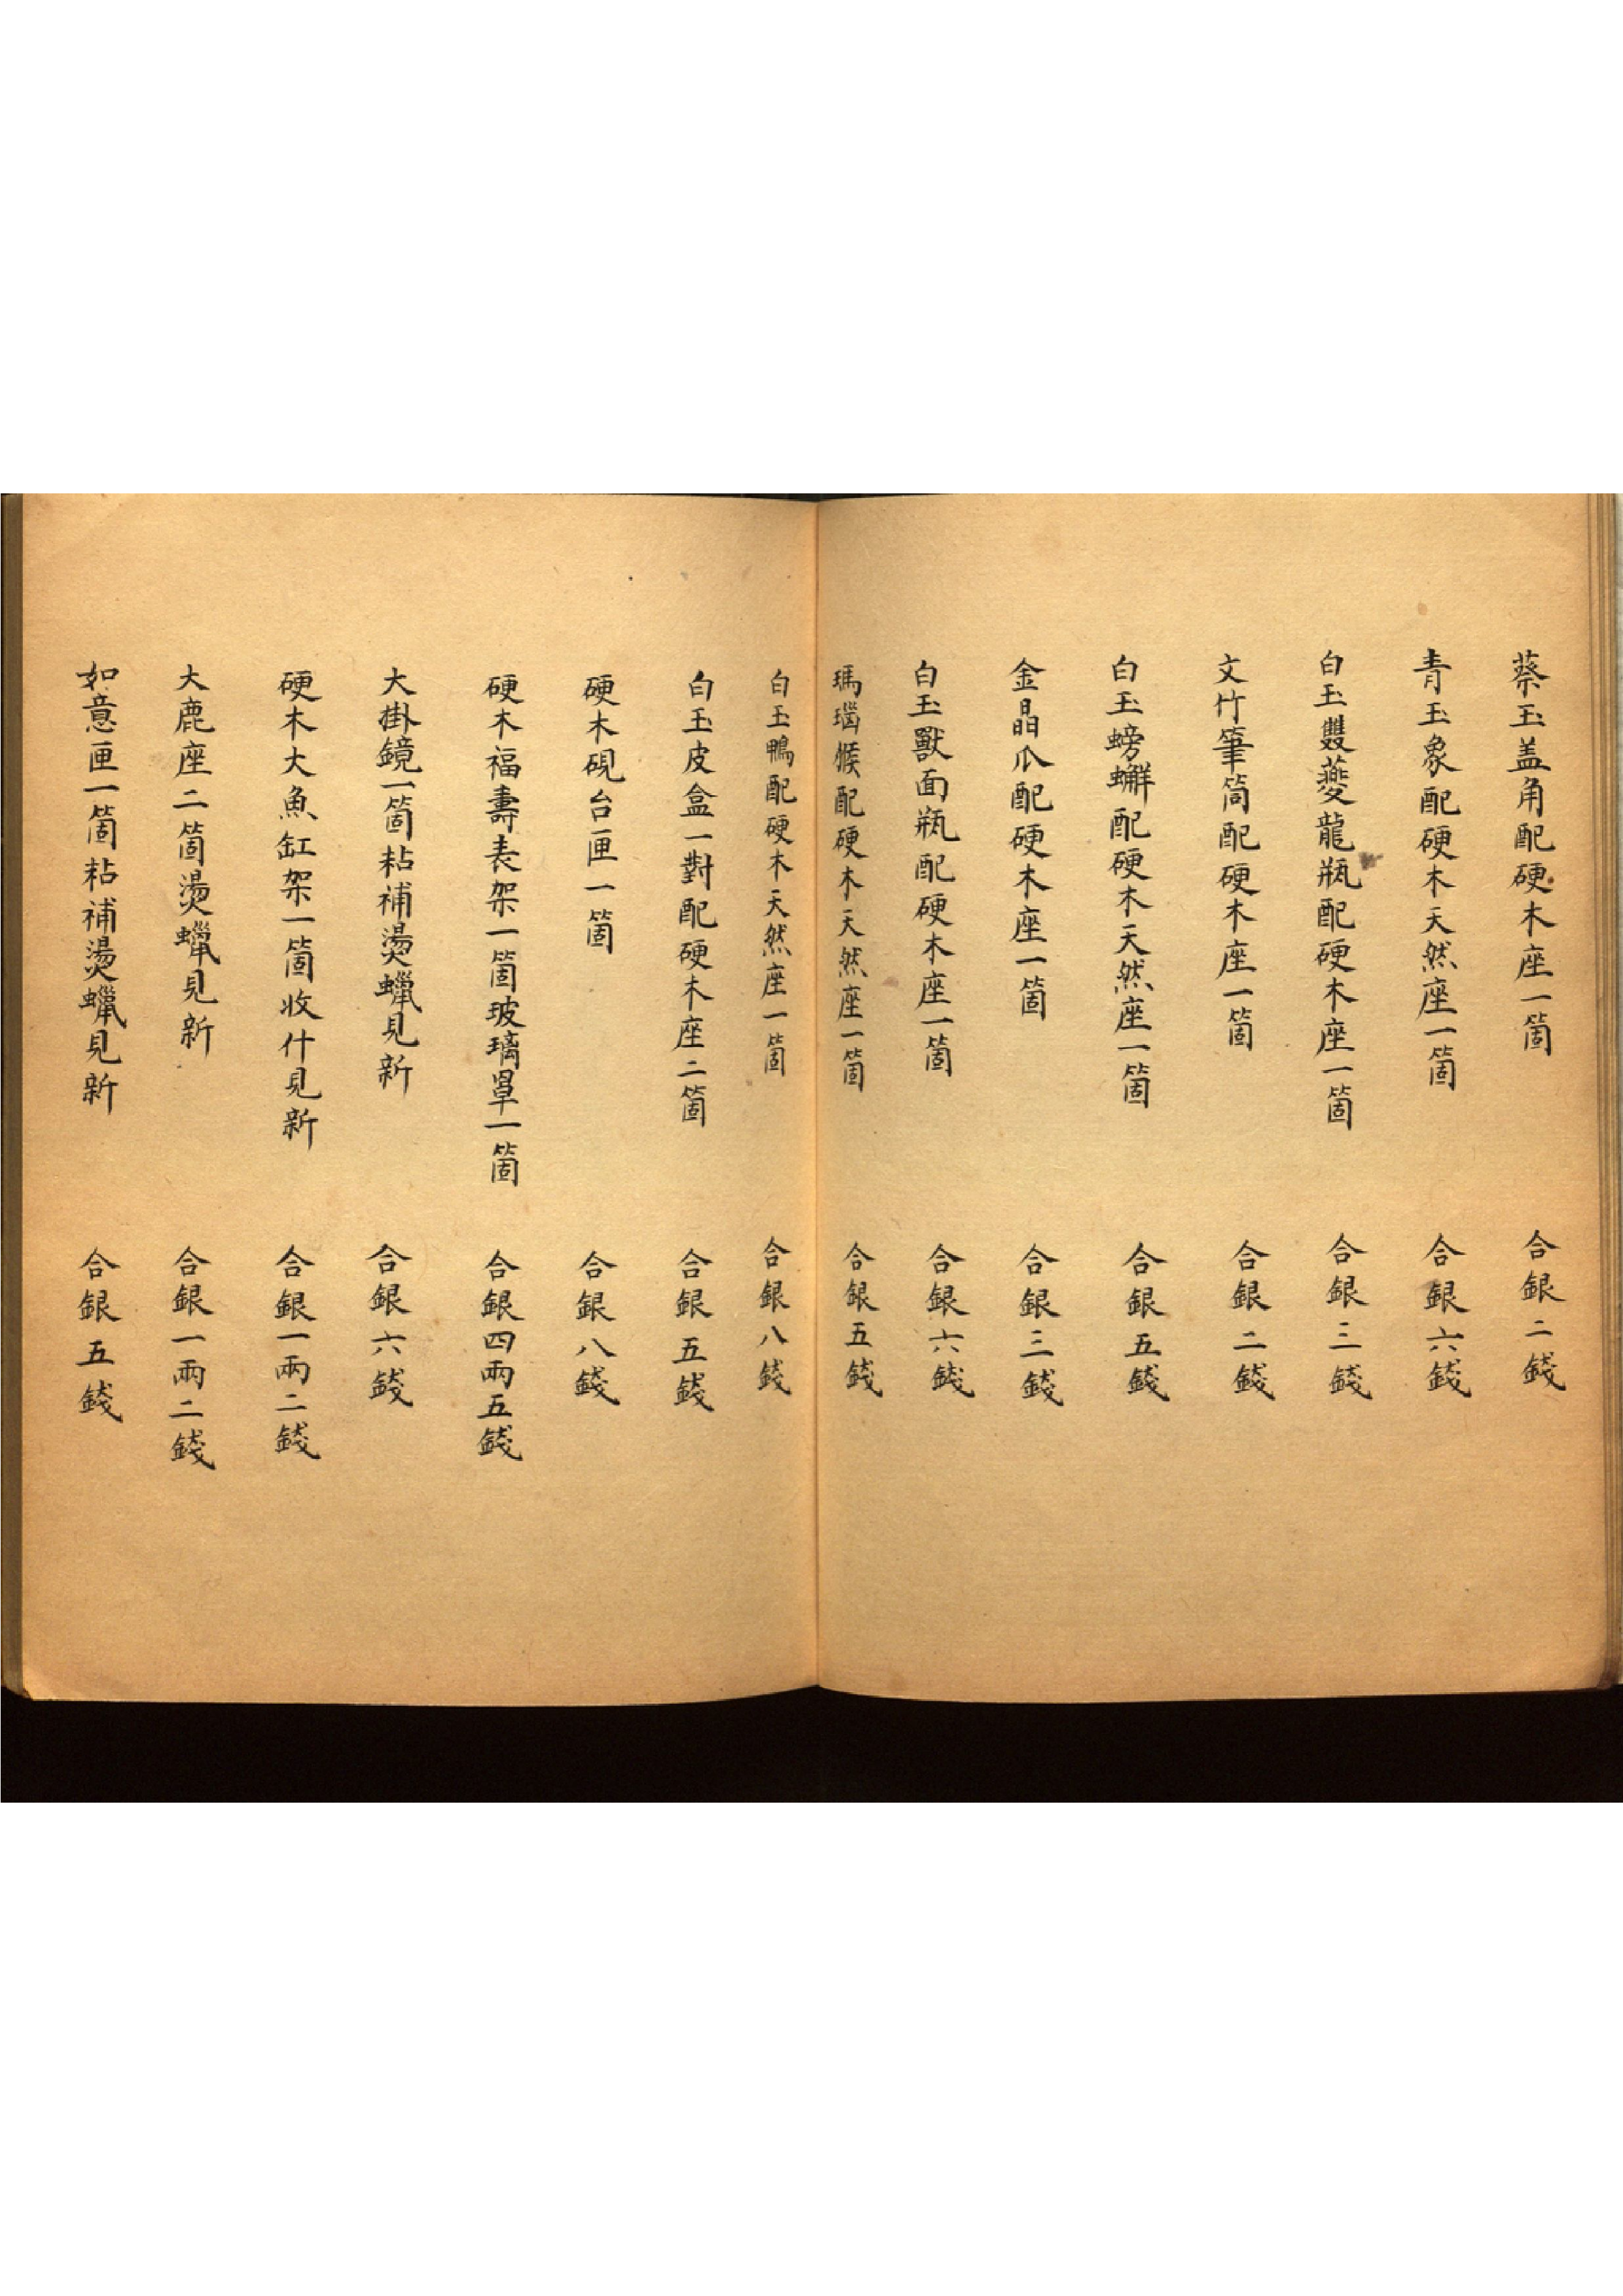 蔡玉盖角配硬木座一箇 合銀二錢
青玉象配硬木天然座一箇 合銀六錢
白玉雙夔龍瓶配硬木座一箇 合銀三錢
文竹筆筒配硬木座一箇 合銀二錢
白玉螃蠏配硬木天然座一箇 合銀五錢
金晶爪配硬木座一箇 合銀三錢
白玉獸面瓶配硬木座一箇 合銀六錢
瑪瑙猴配硬木天然座一箇 合銀五錢
白玉鴨配硬木天然座一箇 合銀八錢
白玉皮盒一對配硬木座二箇 合銀五錢
硬木硯台匣一箇 合銀八錢
硬木福壽表架一箇玻璃罩一箇 合銀四兩五錢
大掛鏡一箇粘補燙蠟見新 合銀六錢
硬木大魚缸架一箇收什見新 合銀一兩二錢
大鹿座二箇燙蠟見新 合銀一兩二錢
如意匣一箇粘補燙蠟見新 合銀五錢